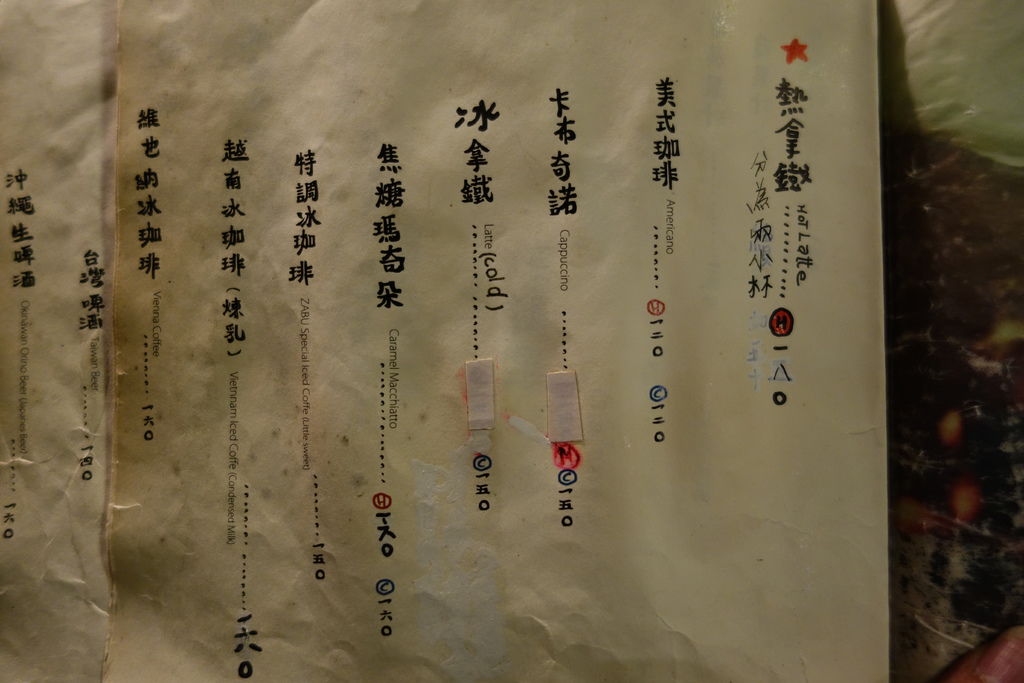 熱拿鐵 HOT Latte Ⓗ一八0
分為兩小杯
美式珈琲 Americano Ⓗ一二0 Ⓒ一二0
卡布奇諾 Cappuccino Ⓗ Ⓒ一五0
冰拿鐵 Latte (cold) Ⓒ一五0
焦糖瑪奇朵 Caramel Macchiatto Ⓗ一六0 Ⓒ一六0
特調冰珈琲 ZABU Special Iced Coffe (Little sweet) 一五0
越南冰珈琲(煉乳) Vietnnam Iced Coffe (Condensed Milk) 一六0
維也納冰珈琲 Vienna Coffee 一六0
台灣啤酒 Taiwan Beer 一四0
沖繩生啤酒 Okinawan Orino Beer (Japanes Beer) 一六0